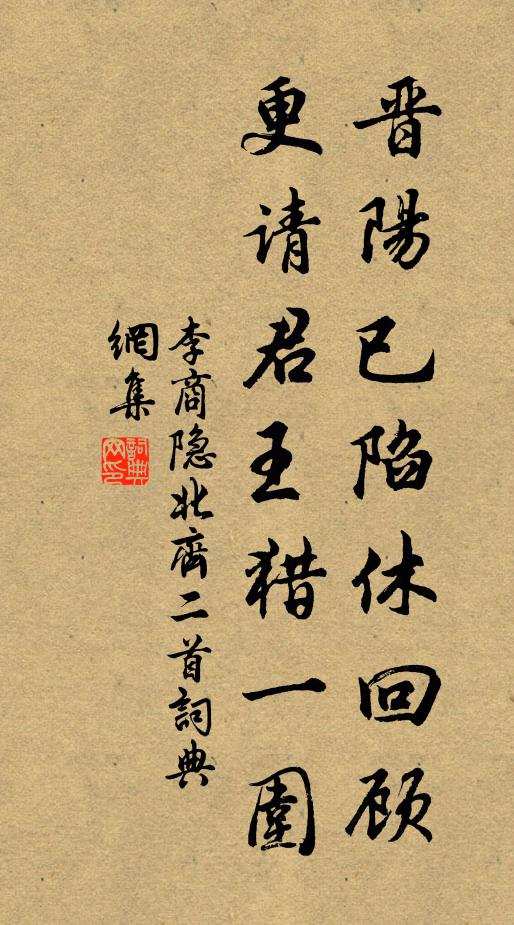 晋陽已陷休回顾
更请君王猎一圍
李商隐北齊二首詞典
網集
詞典
网印